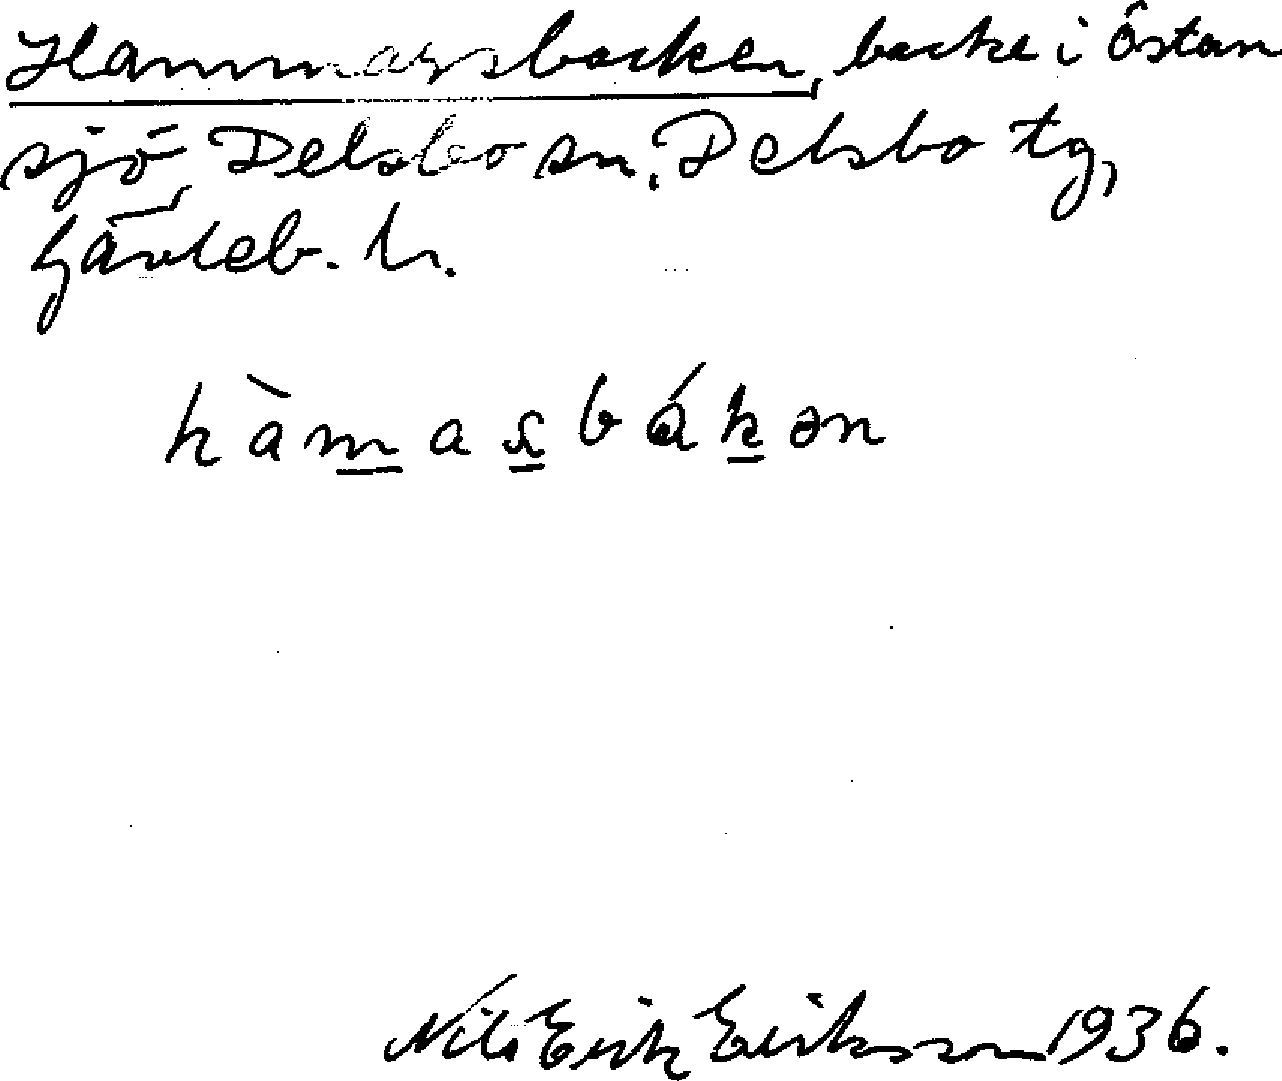 Hammarsbacken, backe i Östan
sjö, Delsbo sn, Delsbo tg,
Gävleb. l.
hàmasbákən
Nils Erik Eriksson 1936.